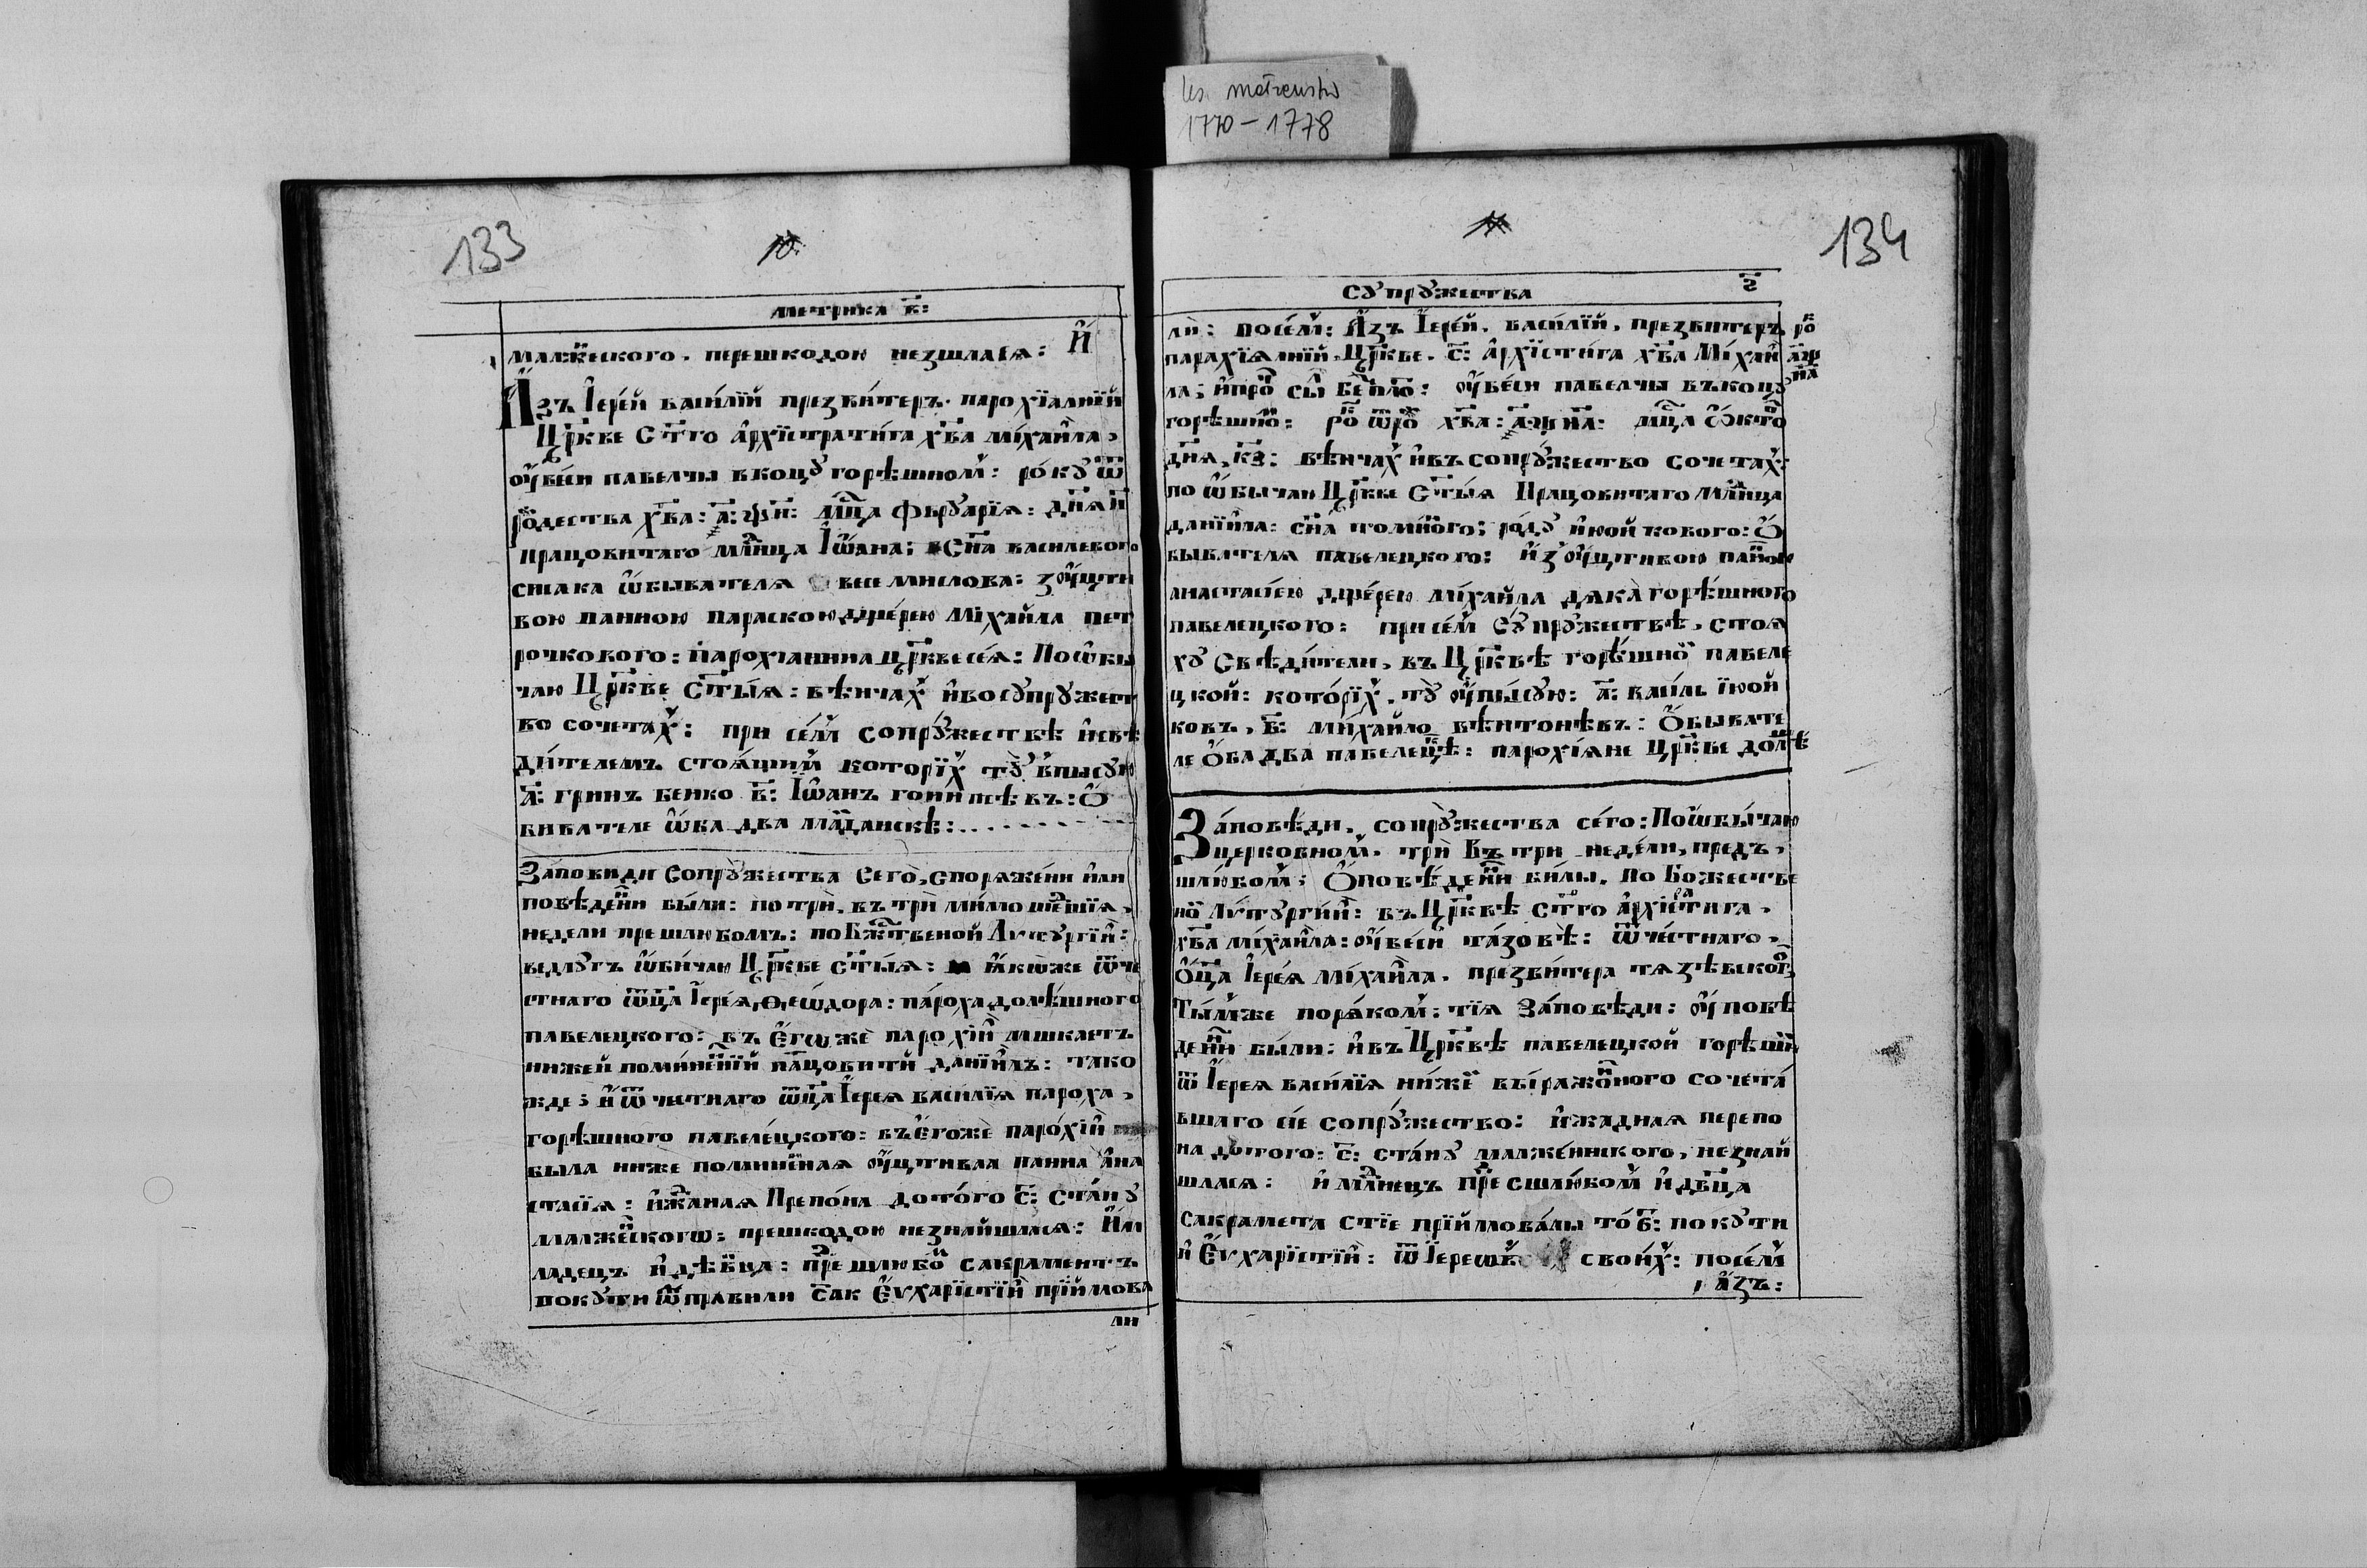 les. małżeństw
1770-1778
133
10.
метрика в҃:
малже́ского. перешкодою незшлася: И҆
А҆зъ І҆ере́й васи́лїй презви́теръ. парохїа́лнїй
Цр҃кве С҃тго а҆рхїстрати́га хв҃а міхаи҆ла,
оу҆ве́си павелчы вкоцꙋ горѣшном: ро́кꙋ ѿ
ро́дества хв҃а: а҃: ѱн҃: мц҃а фърꙋарїя: дн҃я н҃
працовитаго мл҃нца І҆ѡ҆ана; сн҃а василевого
сшака ѡ҆бывателя весе мислова: зоу҆щти
вою панною параскою дще́рею Міха́йла пет
рочкового: парохїанина цр҃квесе́я: Поѡ҆бы
чаю Цр҃кве Ст҃ы́я: вѣнча́х и҆восꙋпрꙋжест
во сочета́х: при се́м сопрꙋ́жествѣ и҆свѣ
ди́телемъ стоя́щим которїх тꙋ̀ впысꙋю
а҃: гринъ бенко в҃: І҆ѡ҆анъ гонишѣвъ: О҆
бивателе ѡ҆ба два маиданскѣ:..........
За́повиди Сопрꙋ́жества Сего̀, споряже́ни и҆ли
повѣде́ни бы́ли: по трѝ. въ трѝ ми́мо шешїя,
недели прешлюбомъ: по Бж҃ственой Литꙋргїи:
ведлꙋгъ ѡ҆би́чаю Цр҃кве ст҃ы́я: ꙗ҆кѡже ѿ че
стнаго ѿц҃а І҆ере́я, Ѳеѡ́дора: па́роха долѣ́шного
павелецкого: въ Є҆гѡжѐ парохїи мшкаетъ
нижей помине́нїй працовитй данїи҆лъ: тако
жде: и҆ ѿ честнаго ѿц҃а І҆ерея василїя пароха,
горѣшного павеле́цкого: въ Є҆гожѐ паро́хїи
была ниже поминеная оу҆щтивая панна а҆на
стасїя: и҆жа́ная Препо́на дото́го с҃: ста́нꙋ
малже́скогѡ: прешкодою незнайшлася: И҆ м
ладецъ и҆ дѣви́ца: пре шлюбом сакраментъ
покꙋти ѿправили так Є҆ѵхарїстїи прїймова
ли
11
134
сꙋпрꙋжества
г҃
лѝ: посе́м: А҆зъ І҆ере́й. васи́лїй, презвитеръ
парахїялнїй, Цр҃кве. с҃: а҆рхїсти́га хв҃а Міхаи҆
ла; оу҆ве́си павелчы въкоцꙋ
горѣшно: ро ѿ ро хв҃а: а҃ѱ н҃а: мц҃а ѡ҆кто
дн҃я, кз҃: вѣнча́х и҆въ сопрꙋ́жество сочета́х:
по ѡ҆бычаю Цр҃кве Ст҃ы́я Працовитаго мл҃нца
данїи҆ла: сн҃а томно́го; ро́дꙋ и҆юой кового: О҆
бывателя павелецкого: и҆з оу҆щтивою паною
анастасі́ею дще́рею міха́йла дяка̀ горѣ́шного
павелецкого: при се́м сꙋпрꙋжествѣ, стоя
хꙋ Свѣди́тели, въ Цр҃квѣ горѣшно павеле
цкой: кото́рїх, тꙋ оу҆пы́сꙋю: а҃: васи́ль їюой
ковъ, в҃: ми́хайло вѣнтонѣвъ: О҆бывате
ле О҆ба два̀ павелецкѣ: парохїяне Цр҃кве долнѣ
ро
а҃ѱ
н҃а
За́повѣди. сопрꙋ́жества се́го: Поѡ҆бы́чаю
церковном. трѝ въ три неде́ли, предъ,
шлюбом; О҆повѣ́дени били. по Божестве
но Лѵтꙋргі́и: въ Цр҃квѣ ст҃го а҆рхїстига,
хв҃а міхаи҆ла: оу҆ве́си тя́зовѣ: ѿ че́стнаго,
О҆ц҃а І҆ере́я міхаи҆ла. презви́тера тязѣвского
Ты́мже поря́ком: тїя За́повѣди: оу҆повѣ
дени были: и҆въ Цр҃квѣ павелецкой горѣшн
ѿ І҆ерея васи́лїя ни́же вы́ражоного сочета́
вшаго сїе сопрꙋ́жество: и҆жадная перепо
на дотого: с҃: ста́нꙋ малже́нского, незнай
шлася: и҆ мл҃нецъ пре сшлю́бом и҆ дв҃ца
сакрамета стїе прїймова́лы то́ є҃: покꙋти
и҆ Є҆ѵхарїстїи: ѿ І҆ереѡв свои́х: посе́м
а҆зъ: